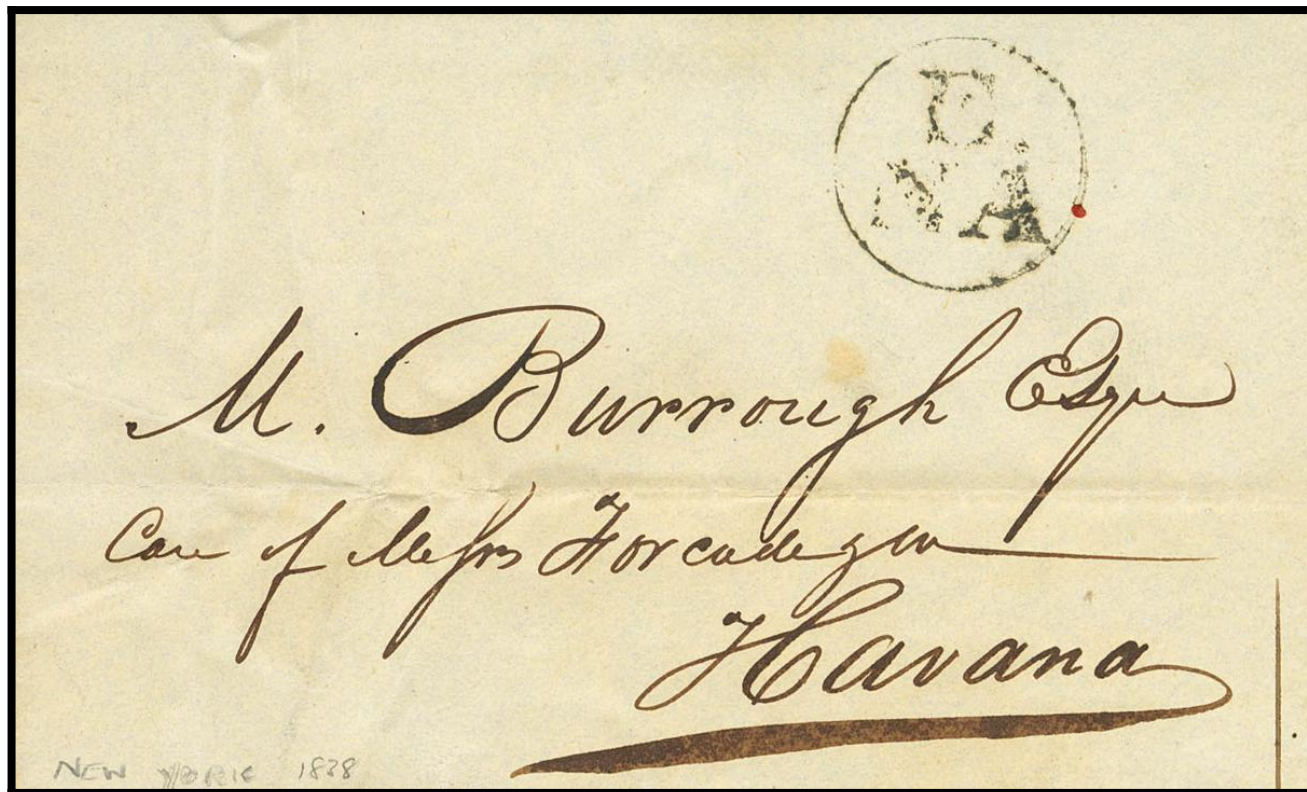 E.
NA
M. Burrough Esqre
Care of Messrs Forcade
Havana
NEW YORK 1838